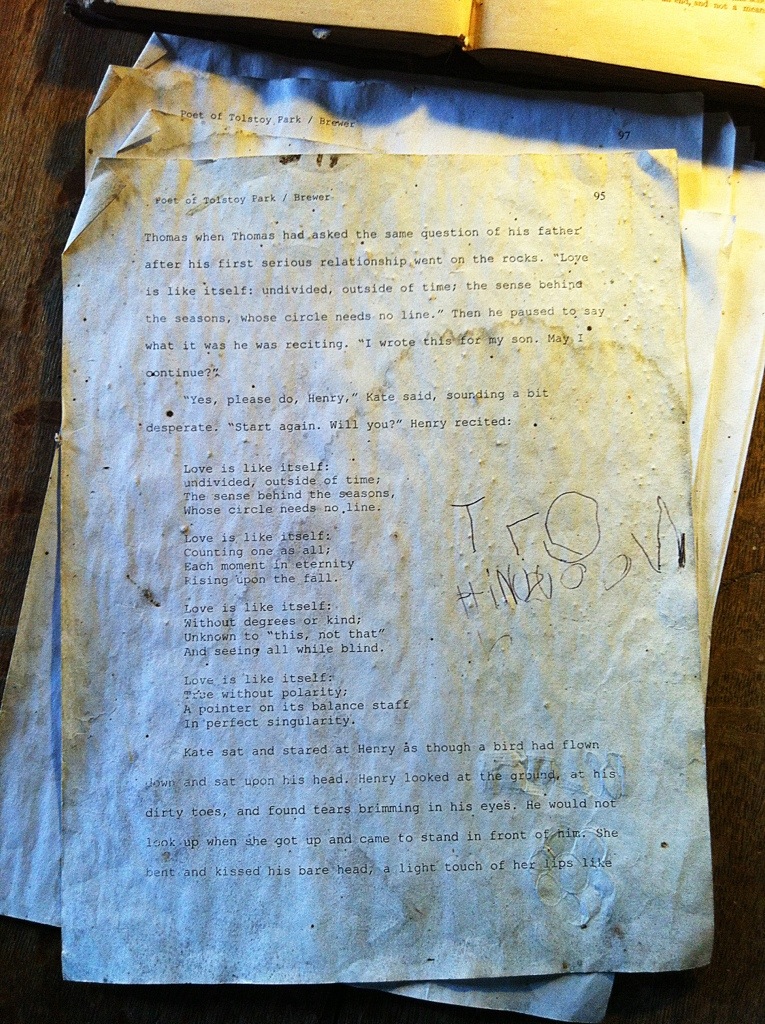 end, and not a mean
Poet of Tolstoy Park / Brewer
97
Poet of Tolstoy Park / Brewer
95
Thomas when Thomas had asked the same question of his father
after his first serious relationship went on the rocks. “Love
is like itself: undivided, outside of time; the sense behind
the seasons, whose circle needs no line.” Then he paused to say
what it was he was reciting. “I wrote this for my son. May I
continue?”
“Yes, please do, Henry,” Kate said, sounding a bit
desperate. “Start again. Will you?” Henry recited:
Love is like itself:
undivided, outside of time;
The sense behind the seasons,
Whose circle needs no line.
Love is like itself:
Counting one as all;
Each moment in eternity
Rising upon the fall.
Love is like itself:
Without degrees or kind;
Unknown to “this, not that”
And seeing all while blind.
Love is like itself:
True without polarity;
A pointer on its balance staff
In perfect singularity.
Kate sat and stared at Henry as though a bird had flown
down and sat upon his head. Henry looked at the ground, at his
dirty toes, and found tears brimming in his eyes. He would not
look up when she got up and came to stand in front of him. She
bent and kissed his bare head, a light touch of her lips like